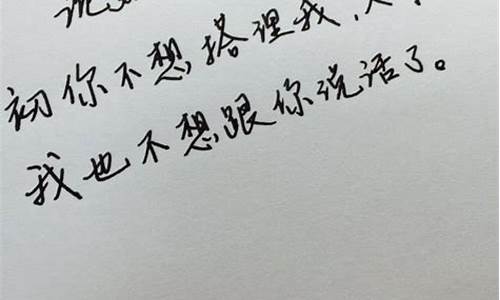 说
初你不想搭理我,
我也不想跟你说话了。